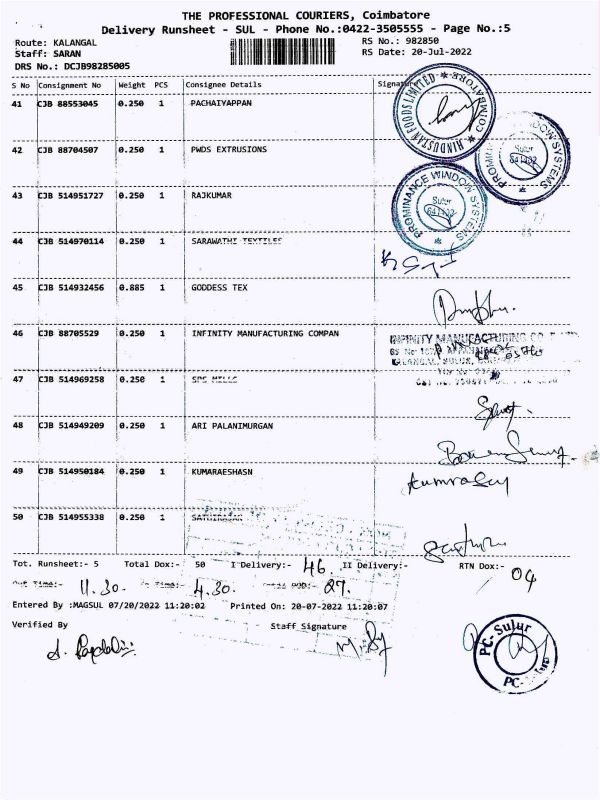 THE PROFESSIONAL COURIERS, Coimbatore
Delivery Runsheet - SUL - Phone No.:0422-3505555 - Page No.:5
Route: KALANGAL RS No.: 982850
Staff: SARAN RS Date: 20-Jul-2022
DRS No.: DCJB98285005
S No Consignment No Weight PCS Consignee Details Signature
41 CJB 88553045 0.250 1 PACHAIYAPPAN
HINDUSTAN FOODS LIMITED * COIMBATORE *
42 CJB 88704507 0.250 1 PWDS EXTRUSIONS
PROMINANCE WINDOW SYSTEMS
Sulur
641402
43 CJB 514951727 0.250 1 RAJKUMAR
PROMINANCE WINDOW SYSTEMS
Sulur
641402
44 CJB 514970114 0.250 1 SARAWATHI TEXTILES
45 CJB 514932456 0.885 1 GODDESS TEX
46 CJB 88705529 0.250 1 INFINITY MANUFACTURING COMPAN
INFINITY MANUFACTURING CO
47 CJB 514969258 0.250 1 SPS MILLS
48 CJB 514949209 0.250 1 ARI PALANIMURGAN
49 CJB 514950184 0.250 1 KUMARAESHASN
50 CJB 514955338 0.250 1
Tot. Runsheet:- 5 Total Dox:- 50 I Delivery:- 46 II Delivery:- RTN Dox:- 04
Out Time:- 11.30. In Time:- 4.30. POD:- 27.
Entered By :MAGSUL 07/20/2022 11:20:02 Printed On: 20-07-2022 11:20:07
Verified By Staff Signature
PC-Sulur
PC-Sulur